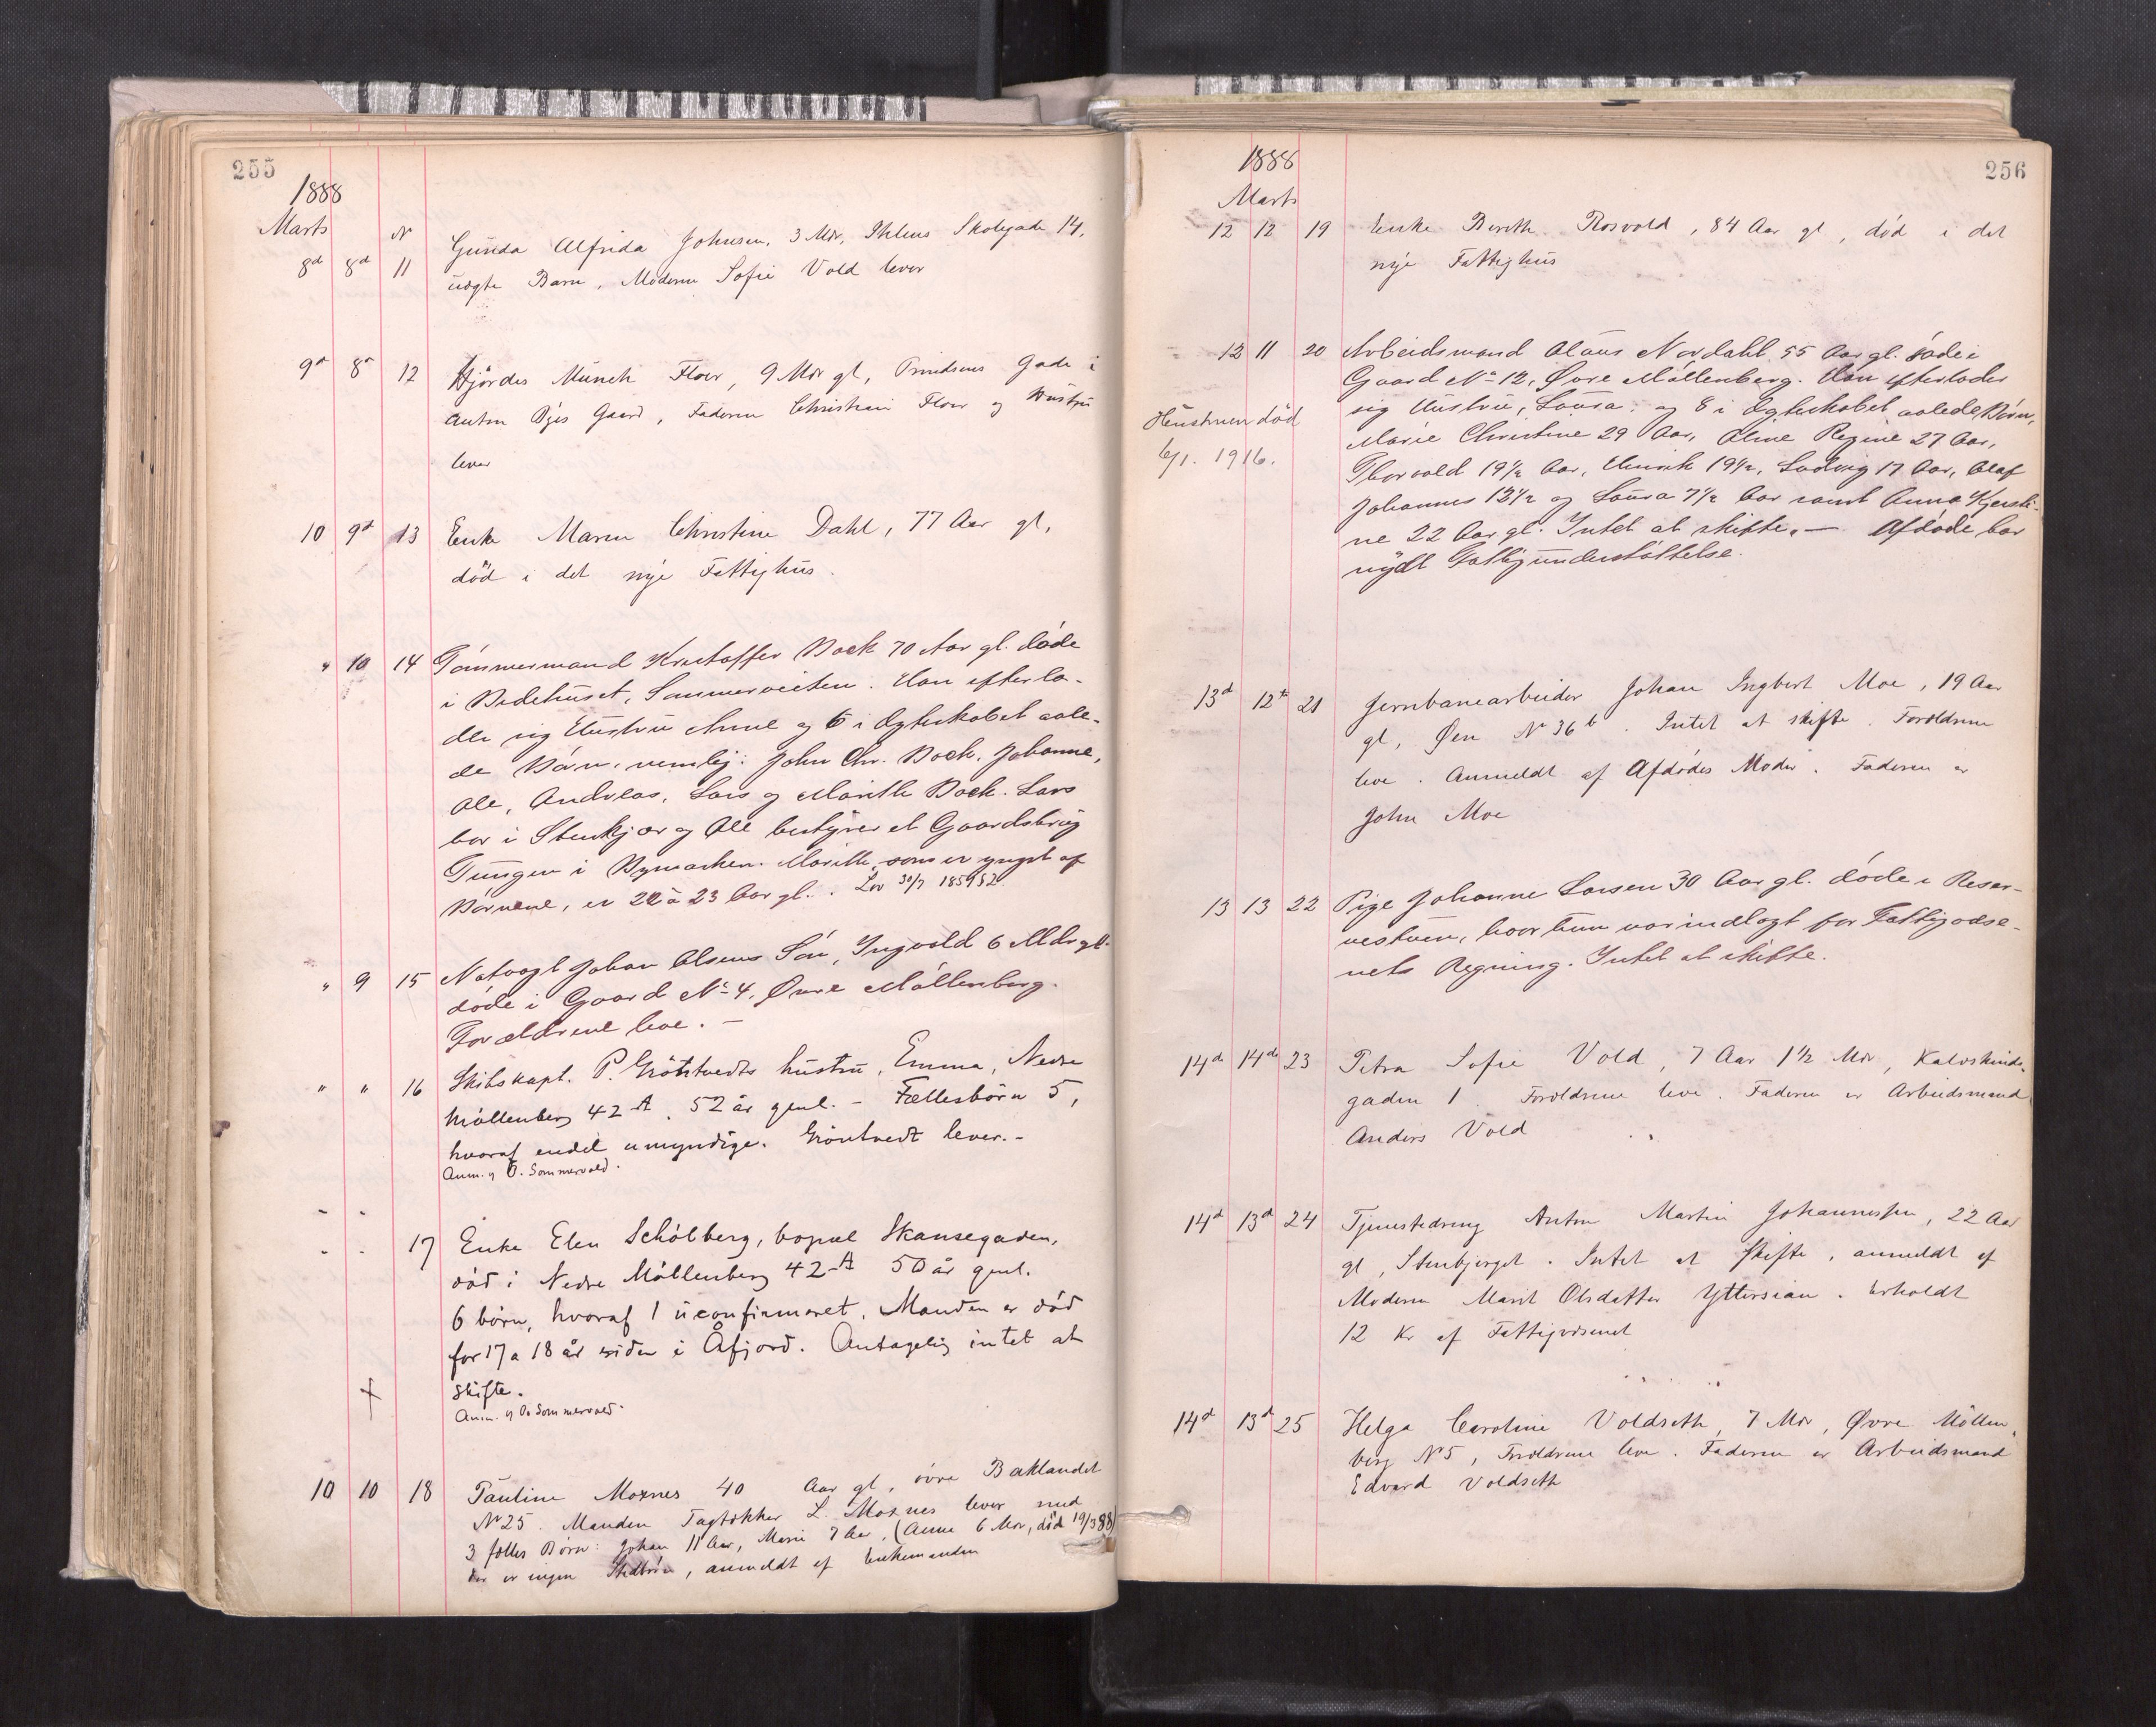 255
1888
Marts
N
8d 8d 11 Gunda Alfrida Johnsen, 3 Mdr, Ihlens Skolegade 14,
uægte Barn, Moderen Sofie Vold lever
9d 8d 12 Hjördes Münch Floer, 9 Mdr gl, Prindsens Gade i
Anton Öjes Gaard, Faderen Christian Floer og Hustru
lever
10 9d 13 Enke Maren Christine Dahl, 77 Aar gl,
död i det nye Fattighus.
" 10 14 Tömmermand Kristoffer Bock 70 Aar gl. döde
i Bedehuset, Sommerveiten. Han efterla-
der sig Hustru Anne og 6 i Ægteskabet avle-
de Börn, nemlig: John Chr. Bock, Johanne,
Ole, Andreas, Lars og Marith Bock. Lars
bor i Stenkjær og Ole bestyrer et Gaardsbrug
Tungen i Bymarken. Marith, som er yngst af
Börnene, er 22 à 23 Aar gl. Lov 30/7 1851 § 2.
" 9 15 Natvagt Johan Olsens Sön, Ingvald 6 Mdr gl.
döde i Gaard No 4, Övre Möllenberg.
Forældrene leve. —
" " 16 Skibskapt. P. Gröntvedts hustru, Emma, Nedre
Möllenberg 42 A, 52 år gml. - Fællesbörn 5,
hvoraf endel umyndige. Gröntvedt lever. -
Anm. af O. Sommervold.
" "
" " 17 Enke Elen Schölberg, bopæl Skansegaden,
död i Nedre Möllenberg 42 A 50 år gml.
6 börn, hvoraf 1 uconfirmeret. Manden er död
for 17 a 18 år siden i Åfjord. Antagelig intet at
skifte.
Anm. af O. Sommervold.
10 10 18 Pauline Moxnes 40 Aar gl, övre Baklandet
No 25. Manden Tagtækker L. Moxnes lever med
3 fælles Börn: Johan 11 Aar, Marie 7 Aar, (Anna 6 Mdr, död 19/3 88)
der er ingen Stedbörn, anmeldt af Enkemanden
256
1888
Marts
12 12 19 Enke Bereth Rosvold, 84 Aar gl, död i det
nye Fattighus
12 11 20 Arbeidsmand Olaus Nordahl 55 Aar gl. döde i
Gaard No 12, Övre Möllenberg. Han efterlader
sig Hustru, Laura, og 8 i Ægteskabet avlede Börn,
Marie Christine 29 Aar, Oline Regine 27 Aar,
Thorvald 19½ Aar, Henrik 19½, Ludvig 17 Aar, Olaf
Johannes 12½ og Laura 7½ Aar samt Anna Kjersti-
ne 22 Aar gl. Intet at skifte. — Afdöde har
nydt Fattigunderstöttelse.
Hustruen död
6/1. 1916.
13d 12te 21 Jernbanearbeider Johan Ingbert Moe, 19 Aar
gl, Øen No 36 b. Intet at skifte. Forældrene
leve. Anmeldt af Afdödes Moder. Faderen er
John Moe
13 13 22 Pige Johanne Larsen 30 Aar gl. döde i Reser-
vestuen, hvor hun var indlagt for Fattigvæse-
nets Regning. Intet at skifte.
14d 14de 23 Petra Sofie Vold, 7 Aar 1½ Mdr, Kalvskinds-
gaden 1. Forældrene leve. Faderen er Arbeidsmand
Anders Vold
14d 13d 24 Tjenestedreng Anton Martin Johannessen, 22 Aar
gl, Stenbjerget. Intet at skifte, anmeldt af
Moderen Marit Olsdatter Yttersian. Erholdt
12 Kr af Fattigvæsenet
14d 13d 25 Helga Caroline Voldseth, 7 Mdr, Øvre Möllen-
berg No 5, Forældrene leve. Faderen er Arbeidsmand
Edvard Voldseth